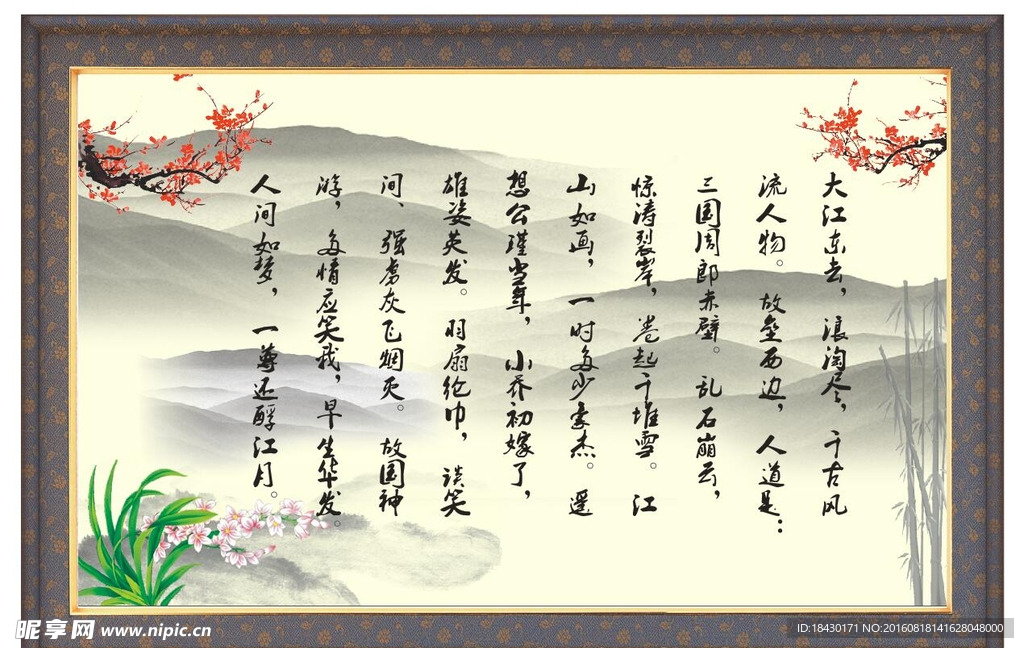 大江东去，浪淘尽，千古风
流人物。故垒西边，人道是：
三国周郎赤壁。乱石崩云，
惊涛裂岸，卷起千堆雪。江
山如画，一时多少豪杰。遥
想公瑾当年，小乔初嫁了，
雄姿英发。羽扇纶巾，谈笑
间、强虏灰飞烟灭。故国神
游，多情应笑我，早生华发。
人间如梦，一尊还酹江月。
昵享网 www.nipic.cn
ID:18430171 NO:20160818141628048000